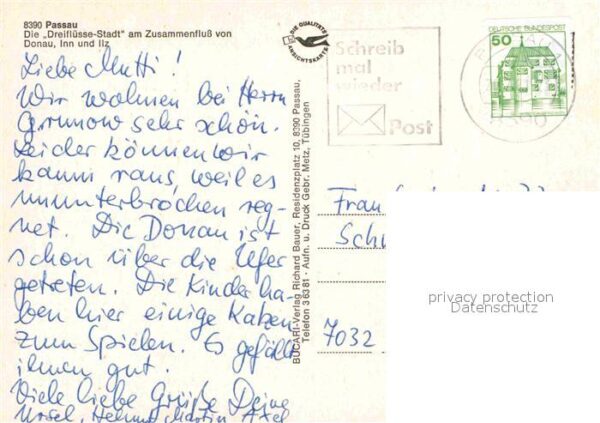 8390 Passau
Die „Dreiflüsse-Stadt" am Zusammenfluß von
Donau, Inn und Ilz
Liebe Mutti!
Wir wohnen bei Herrn
Grunow sehr schön.
Leider können wir
kaum raus, weil es
ununterbrochen reg-
net. Die Donau ist
schon über die Ufer
getreten. Die Kinder ha-
ben hier einige Katzen
zum Spielen. Es gefällt
ihnen gut.
Viele liebe Grüße Deine
Ursel, Helmut, Martin, Axel
BUCARI-Verlag Richard Bauer, Residenzplatz 10, 8390 Passau,
Telefon 36381 · Aufn. u. Druck Gebr. Metz, Tübingen
DIE QUALITÄTS
ANSICHTSKARTE
Schreib
mal
wieder
Post
DEUTSCHE BUNDESPOST
50
Frau
Sch
7032
privacy protection
Datenschutz